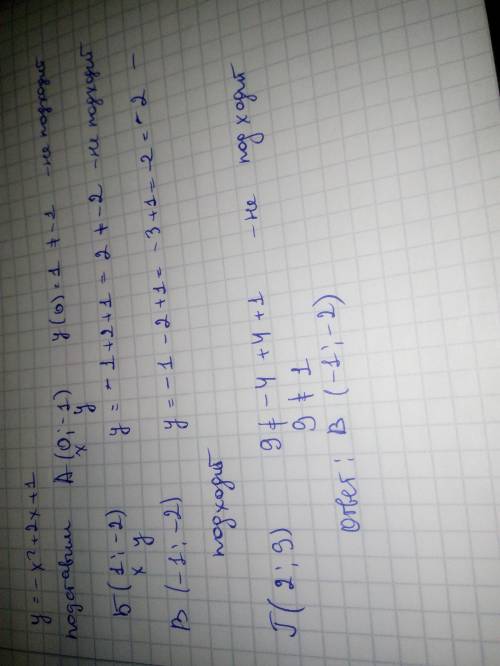 y = -x²+2x+1
подставим A(0;-1) y(0)=1 ≠ -1 -не подходит
x y
Б(1;-2) y = -1+2+1 = 2 ≠ -2 -не подходит
x y
В (-1;-2) y = -1 -2+1 = -3+1 = -2 = -2 -
подходит
Г(2;9) 9 ≠ -4+4+1 -не подходит
9 ≠ 1
Ответ: В (-1;-2)